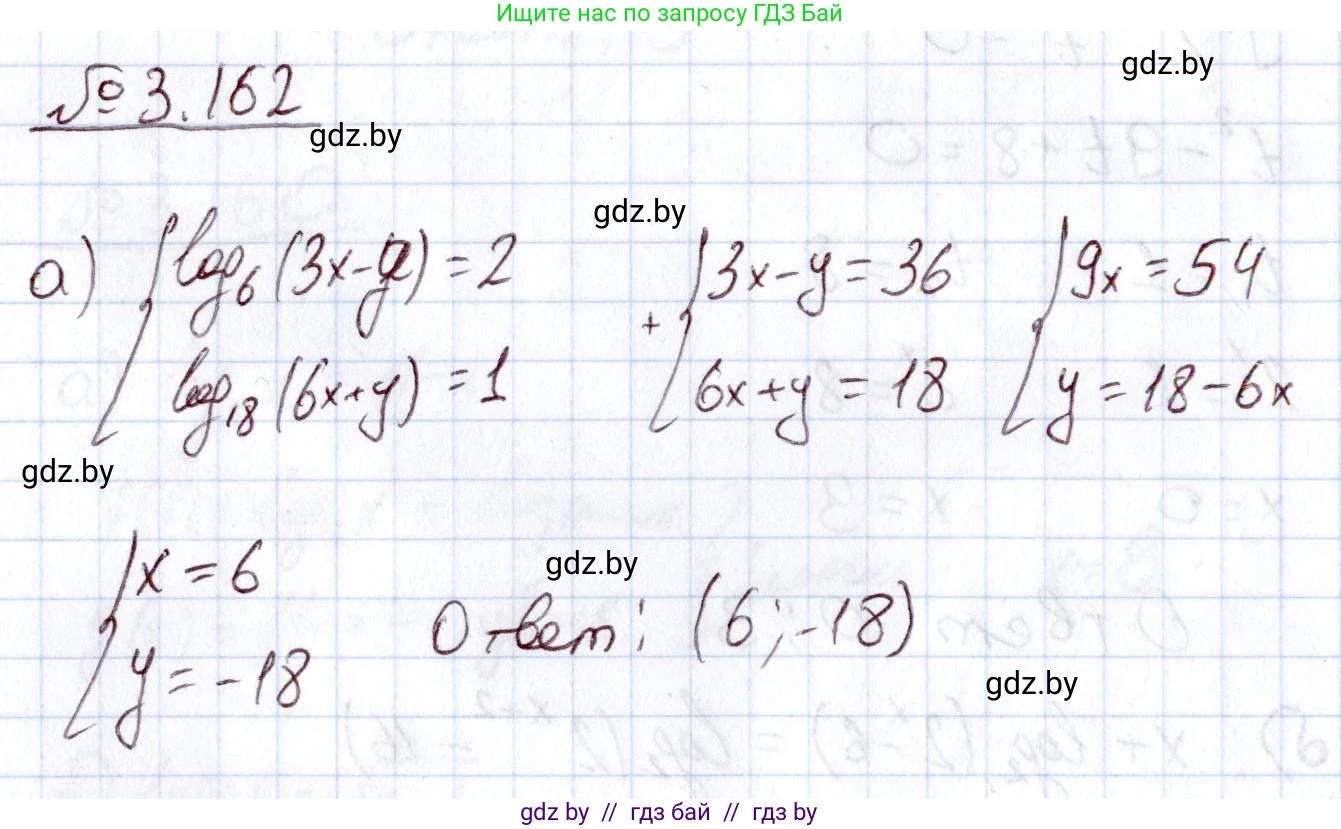 Ищите нас по запросу ГДЗ Бай
gdz.by
№ 3.162
gdz.by
gdz.by
а) { log₆(3x-y) = 2 + { 3x-y = 36 { 9x = 54
log₁₈(6x+y) = 1 6x+y = 18 y = 18-6x
gdz.by
{ x = 6
gdz.by
y = -18 Ответ: (6; -18)
gdz.by
gdz.by // гдз бай // гдз by